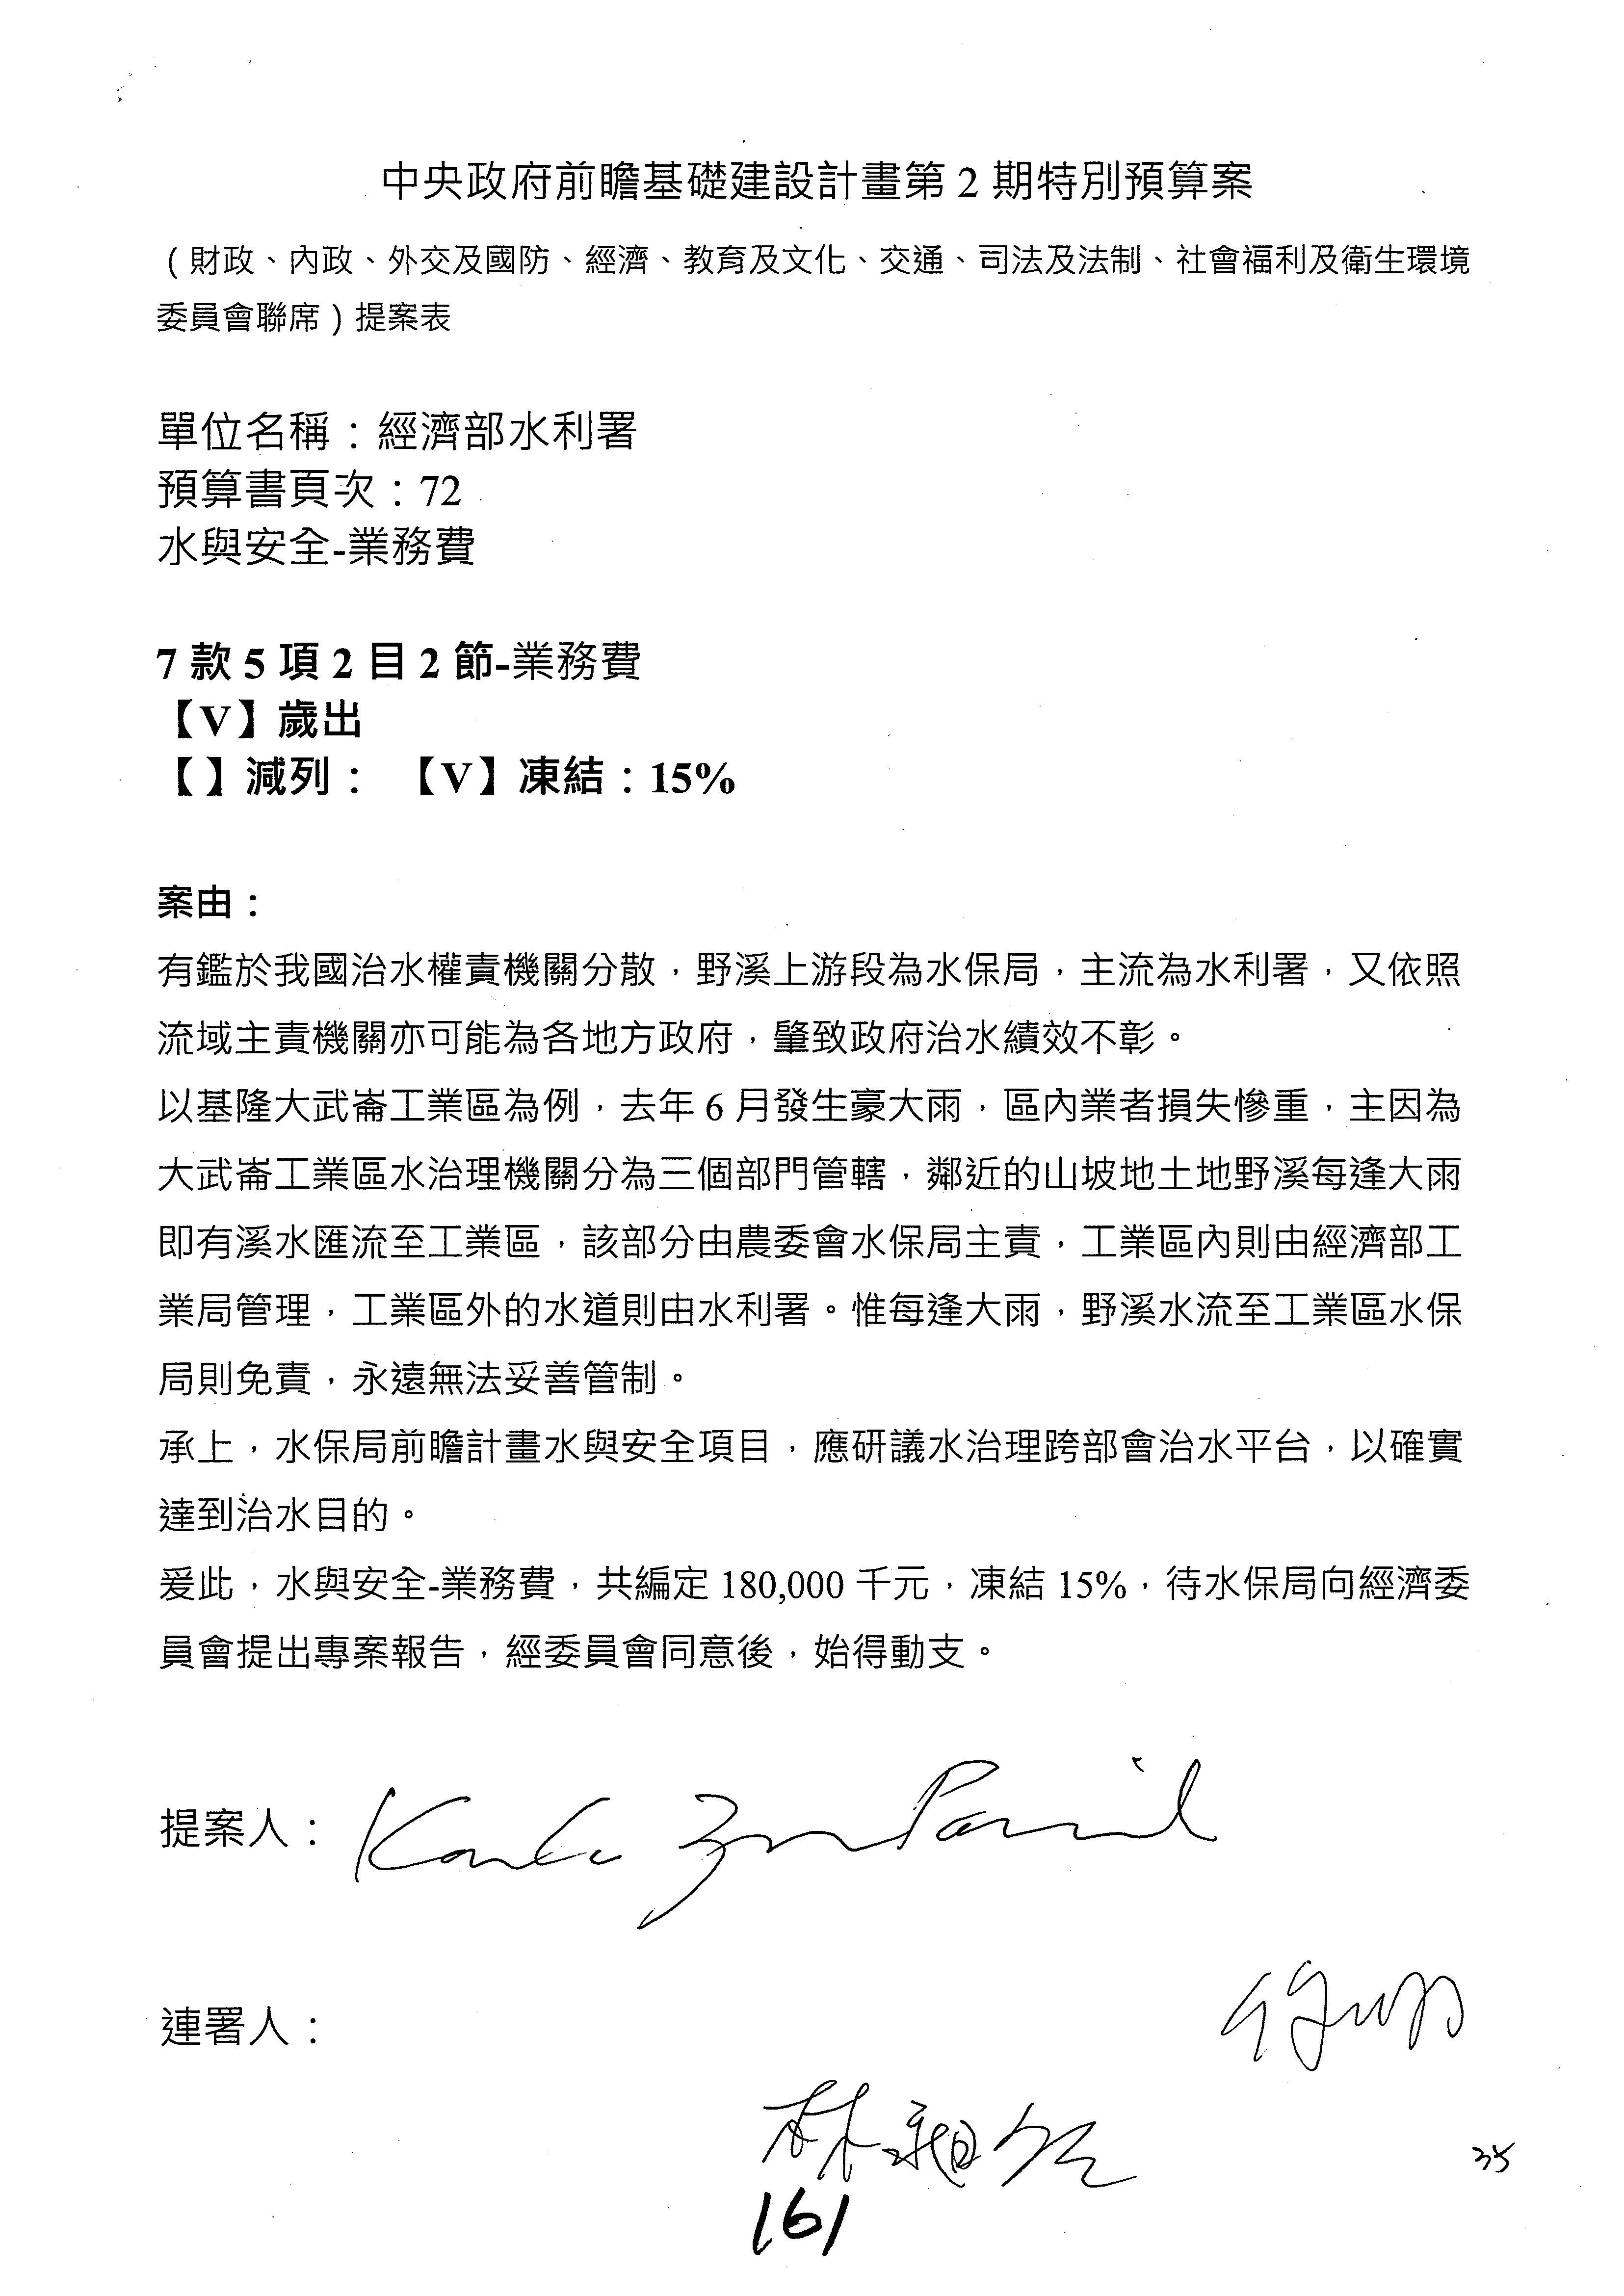 中央政府前瞻基礎建設計畫第 2 期特別預算案
（財政、內政、外交及國防、經濟、教育及文化、交通、司法及法制、社會福利及衛生環境
委員會聯席）提案表
單位名稱：經濟部水利署
預算書頁次：72
水與安全-業務費
7 款 5 項 2 目 2 節-業務費
【V】歲出
【 】減列： 【V】凍結：15%
案由：
有鑑於我國治水權責機關分散，野溪上游段為水保局，主流為水利署，又依照
流域主責機關亦可能為各地方政府，肇致政府治水績效不彰。
以基隆大武崙工業區為例，去年 6 月發生豪大雨，區內業者損失慘重，主因為
大武崙工業區水治理機關分為三個部門管轄，鄰近的山坡地土地野溪每逢大雨
即有溪水匯流至工業區，該部分由農委會水保局主責，工業區內則由經濟部工
業局管理，工業區外的水道則由水利署。惟每逢大雨，野溪水流至工業區水保
局則免責，永遠無法妥善管制。
承上，水保局前瞻計畫水與安全項目，應研議水治理跨部會治水平台，以確實
達到治水目的。
爰此，水與安全-業務費，共編定 180,000 千元，凍結 15%，待水保局向經濟委
員會提出專案報告，經委員會同意後，始得動支。
提案人：
連署人：
林昶佐
161
35